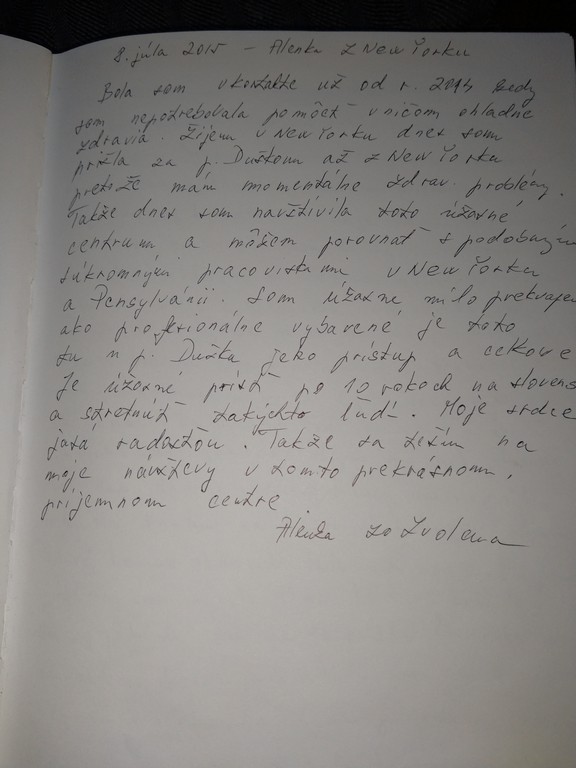 8. júla 2015 – Alenka z New Yorku
Bola som v kontakte už od r. 2014 kedy
som nepotrebovala pomôcť v ničom ohladne
zdravia. Žijem v New Yorku dnes som
prišla za p. Duškom až z New Yorku
pretože mám momentálne zdrav. problémy.
Takže dnes som navštívila toto úžasné
centrum a môžem porovnať s podobnými
súkromnými pracoviskami v New Yorku
a Pensylvánii. Som úžasne milo prekvapen
ako profesionálne vybavené je toto
tu u p. Duška jeho prístup a celkove
Je úžasné prísť po 10 rokoch na Slovens
a stretnúť takýchto ľudí. Moje srdce
jasá radosťou. Takže sa teším na
moje návštevy v tomto prekrásnom,
príjemnom centre
Alenka zo Zvolena